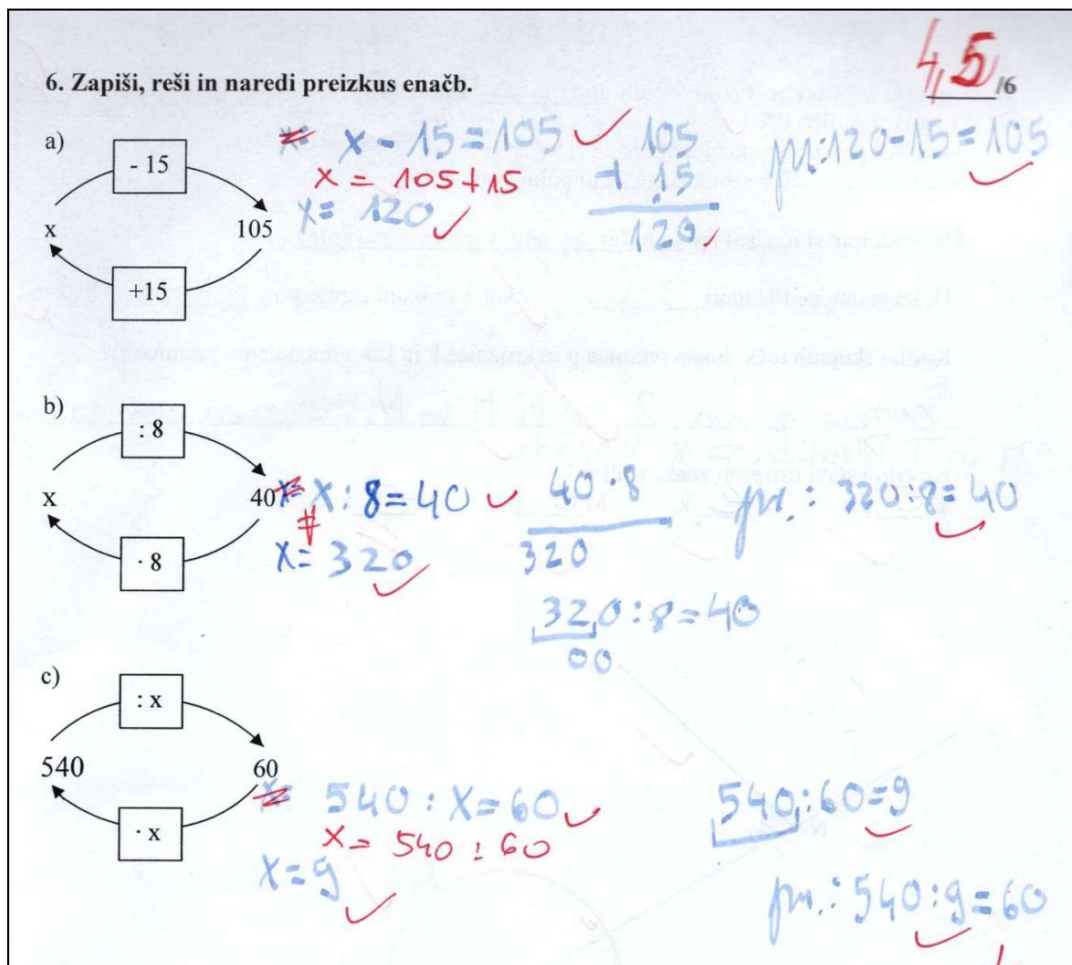 4,5 /6
6. Zapiši, reši in naredi preizkus enačb.
a)
- 15
x
105
+15
x= x - 15 = 105
x = 105 + 15
x = 120
105
+ 15
120
pr.: 120 - 15 = 105
b)
: 8
x
40
· 8
x= x : 8 = 40
x = 320
40 · 8
320
320 : 8 = 40
00
pr.: 320 : 8 = 40
c)
: x
540
60
· x
x= 540 : x = 60
x = 540 : 60
x = 9
540 : 60 = 9
pr.: 540 : 9 = 60